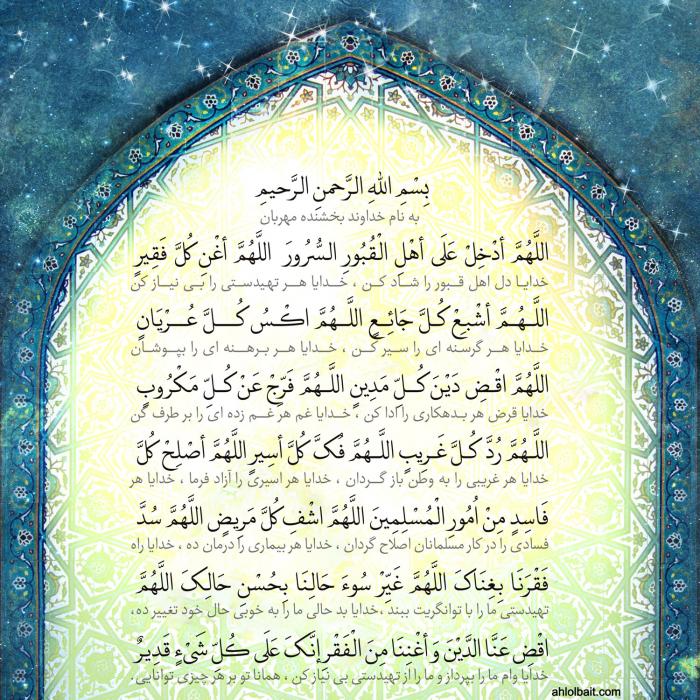 بِسْمِ اللهِ الرَّحمنِ الرَّحیمِ
به نام خداوند بخشنده مهربان
اللَّهُمَّ أَدْخِلْ عَلَى أَهْلِ الْقُبُورِ السُّرُورَ اللَّهُمَّ أَغْنِ كُلَّ فَقِيرٍ
خدایا دل اهل قبور را شاد کن ، خدایا هر تهیدستی را بی نیاز کن
اللَّهُمَّ أَشْبِعْ كُلَّ جَائِعٍ اللَّهُمَّ اكْسُ كُلَّ عُرْيَانٍ
خدایا هر گرسنه ای را سیر کن ، خدایا هر برهنه ای را بپوشان
اللَّهُمَّ اقْضِ دَيْنَ كُلِّ مَدِينٍ اللَّهُمَّ فَرِّجْ عَنْ كُلِّ مَكْرُوبٍ
خدایا قرض هر بدهکاری را ادا کن ، خدایا غم هر غم زده ای را بر طرف کن
اللَّهُمَّ رُدَّ كُلَّ غَرِيبٍ اللَّهُمَّ فُكَّ كُلَّ أَسِيرٍ اللَّهُمَّ أَصْلِحْ كُلَّ
خدایا هر غریبی را به وطن باز گردان ، خدایا هر اسیری را آزاد فرما ، خدایا هر
فَاسِدٍ مِنْ أُمُورِ الْمُسْلِمِينَ اللَّهُمَّ اشْفِ كُلَّ مَرِيضٍ اللَّهُمَّ سُدَّ
فسادی را در کار مسلمانان اصلاح گردان ، خدایا هر بیماری را درمان ده ، خدایا راه
فَقْرَنَا بِغِنَاكَ اللَّهُمَّ غَيِّرْ سُوءَ حَالِنَا بِحُسْنِ حَالِكَ اللَّهُمَّ
تهیدستی ما را با توانگریت ببند ،خدایا بد حالی ما را به خوبی حال خود تغییر ده،
اقْضِ عَنَّا الدَّيْنَ وَ أَغْنِنَا مِنَ الْفَقْرِ إِنَّكَ عَلَى كُلِّ شَيْءٍ قَدِيرٌ
خدایا وام ما را بپرداز و ما را از تهیدستی بی نیاز کن ، همانا تو بر هر چیزی توانایی.
ahlolbait.com